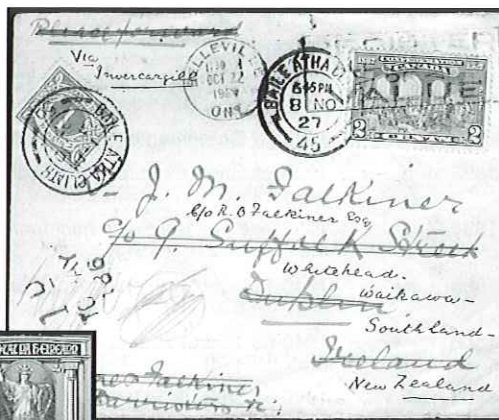 Please forward
Via
Invercargill
BELLEVILLE
OCT 22
ONT
BAILE ATHA CLIATH
6 45 PM
8 NO
27
45
CONFEDERATION
CANADA
2 2
BAILE ATHA CLIATH
J. M. Falkiner
c/o R. D Falkiner Esq
c/o 9. Suffolk Street
Whitehead.
Dublin
Waikawa-
Southland-
Ireland
New Zealand
Falkiner,
Barristers